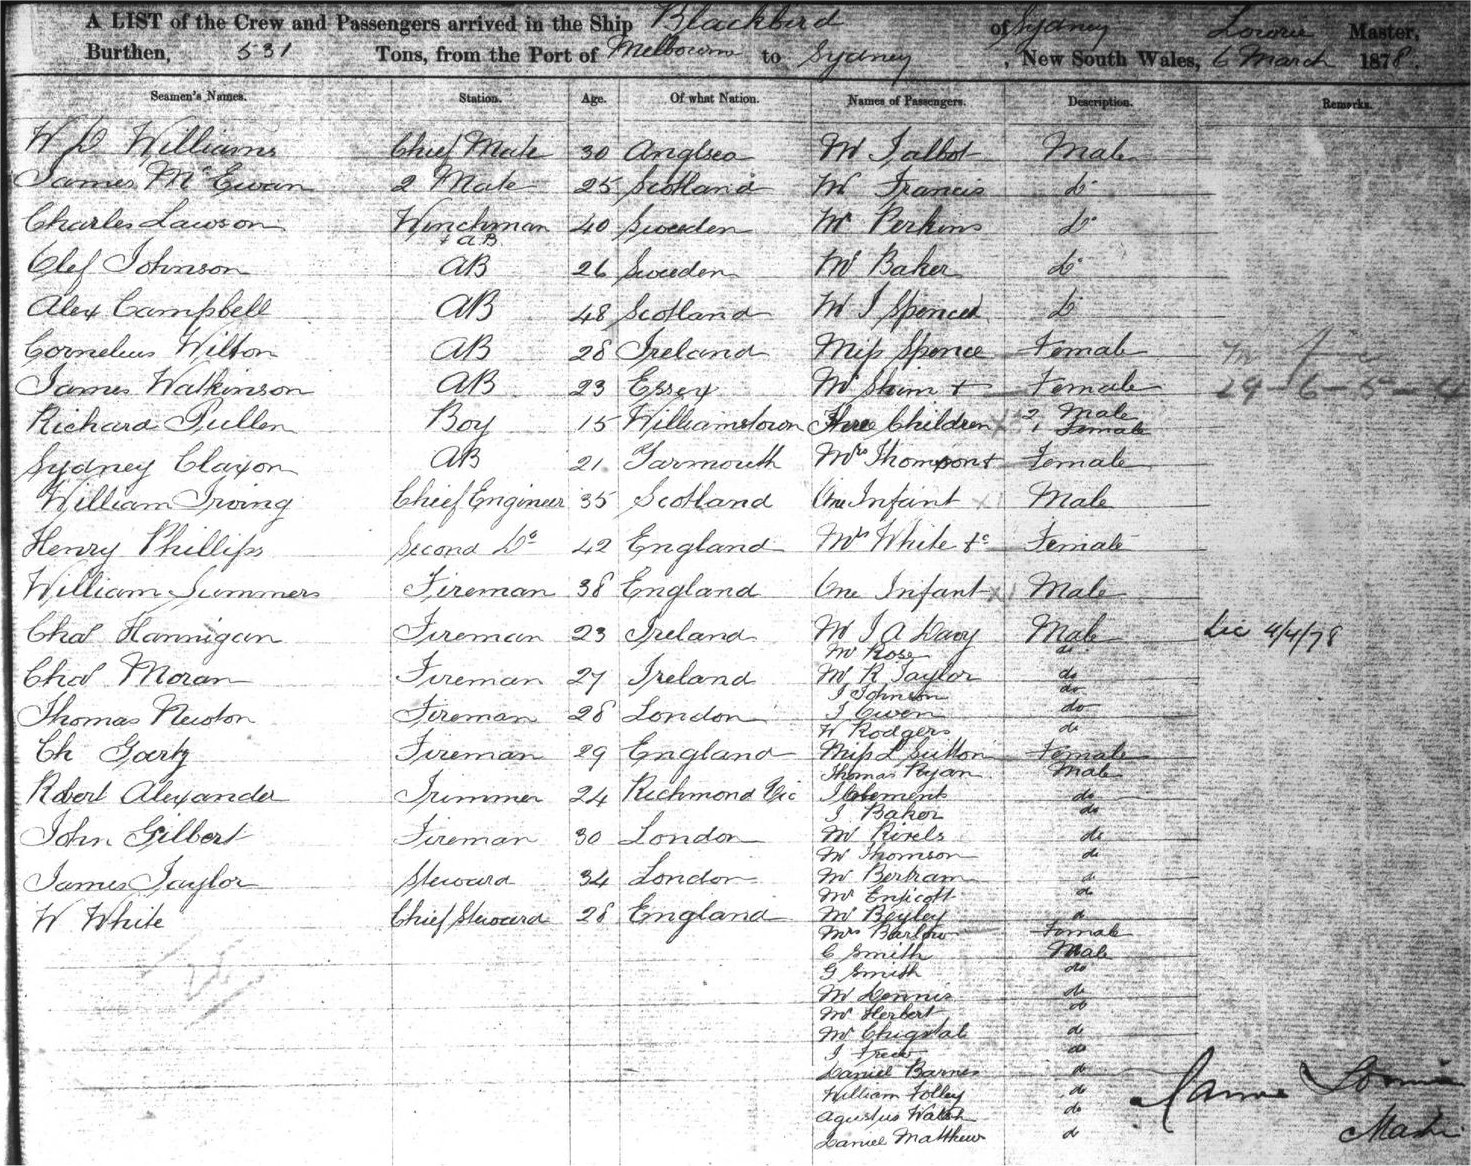 A LIST of the Crew and Passengers arrived in the Ship Blackbird of Sydney Lowrie Master,
Burthen, 531 Tons, from the Port of Melbourne to Sydney, New South Wales, 6 March 1878.
Seamen's Names. Station. Age. Of what Nation. Names of Passengers. Description. Remarks.
W D Williams Chief Mate 30 Anglsea Mr Talbot Male
James McEwan 2 Mate 25 Scotland Mr Francis Do
Charles Lawson Winchman 40 Sweden Mr Perkins Do
+ AB
Olef Johnson AB 26 Sweden Mr Baker Do
Alex Campbell AB 48 Scotland Mr J Spence Do
Cornelius Wilton AB 28 Ireland Miss Spence Female
James Watkinson AB 23 Essex Mrs + Female 29-6-5-4
Richard Pullen Boy 15 Williamstown Three Children 2 Male
1 Female
Sydney Claxon AB 21 Yarmouth Mrs Thompson + Female
William Irving Chief Engineer 35 Scotland One Infant x1 Male
Henry Phillips Second Do 42 England Mrs White + Female
William Summers Fireman 38 England One Infant x1 Male
Chas Hannigan Fireman 23 Ireland Mr J A Davy Male Lic 4/4/78
Mr Rose do
Chas Moran Fireman 27 Ireland Mr R Taylor do
J Johnson do
Thomas Newton Fireman 28 London J Owen do
W Rodgers do
Ch Fireman 29 England Miss L Sutton Female
Thomas Ryan Male
Robert Alexander Trimmer 24 Richmond Vic J Clement do
J Baker do
John Gilbert Fireman 30 London Mr Rivels do
Mr Thomson do
James Taylor Steward 34 London Mr Bertram do
Mr Endicott do
W White Chief Steward 28 England Mr Beyley do
Mrs Barlow Female
C Smith Male
G Smith do
Mr Dennis do
Mr Herbert do
Mr do
J Frew do
Daniel Barnes do
William Folley do
Agustus Walsh do
Daniel Matthew do
James Lowrie
Master